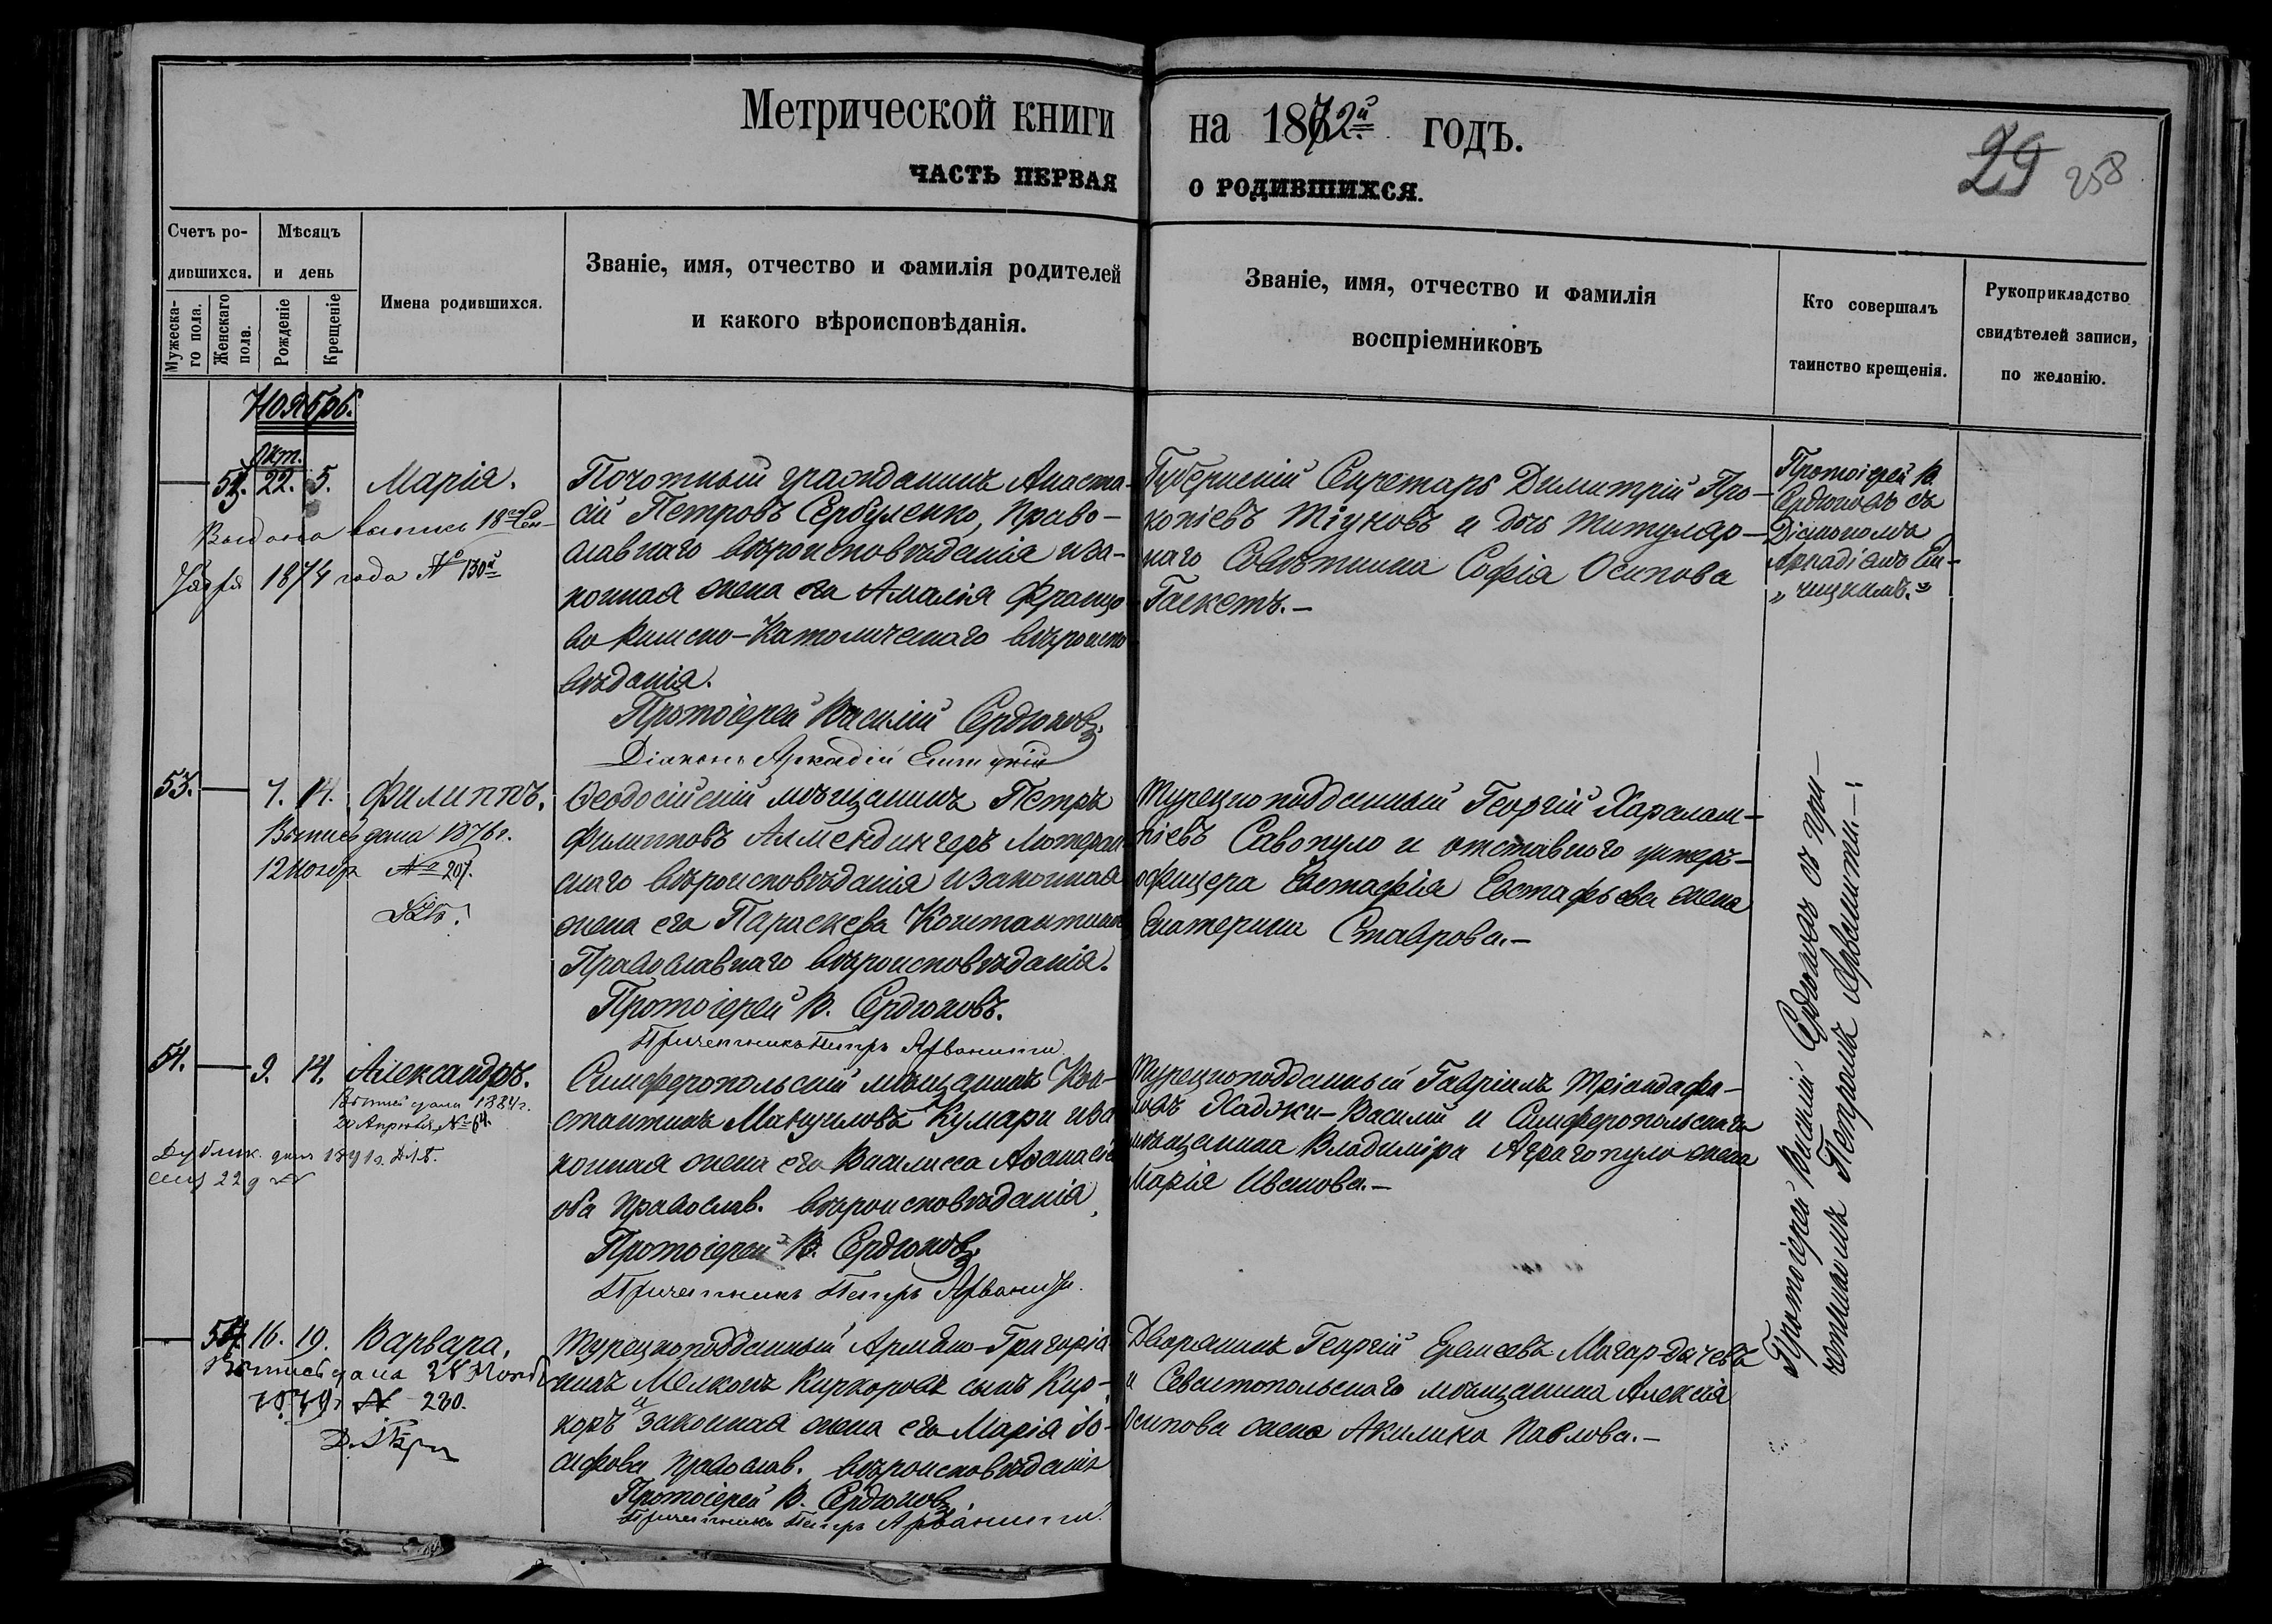 Метрической книги на 1872й годъ.
29 258
ЧАСТЬ ПЕРВАЯ О РОДИВШИХСЯ.
Счетъ родившихся.
Мужескаго пола.
Женскаго пола.
Мѣсяцъ и день
Рожденіе
Крещеніе
Имена родившихся.
Званіе, имя, отчество и фамилія родителей
и какого вѣроисповѣданія.
Званіе, имя, отчество и фамилія
воспріемниковъ
Кто совершалъ
таинство крещенія.
Рукоприкладство
свидѣтелей записи,
по желанію.
Ноябрь.
Окт.
22. 5. Марія.
Выдана выпись 18го Сен-
тября 1874 года № 130й
Почотный гражданинъ Анаста-
сій Петровъ Сербуленко, Право-
славнаго вѣроисповѣданія и за-
конная жена его Амалія Францо
ва Римско-Католическаго вѣроиспо
вѣданія.
Протоіерей Василій Сердюковъ.
Діаконъ Аркадій
Губернскій Секретарь Димитрій Про-
копіевъ Тіуновъ и дочь титуляр-
наго Совѣтника Софія Осипова
Гаскетъ.-
Протоіерей В.
Сердюковъ съ
Діакономъ
Аркадіемъ
53. — 7. 14. Филиппъ.
Выпись дана 1876 г.
12 ноября № 207.
Ѳеодосійскій мѣщанинъ Петръ
Филипповъ Алмендингеръ Лютеран
скаго вѣроисповѣданія и законная
жена его Параскева Константинова
Православнаго вѣроисповѣданія.
Протоіерей В. Сердюковъ.
Причетникъ Петръ Арванити.
Турецкоподданный Георгій Харалам-
піевъ Савопуло и отставного унтеръ-
офицера Евстафія Евстафьева жена
Екатерина Ставрова.-
54. — 9. 14. Александръ.
Выпись дана 1884 г.
20 Апрѣля, № 64.
Дублик. дана 1891 г.
Симферопольскій мѣщанинъ Кон-
стантинъ Мануиловъ Кумари и за
конная жена его Василисса Аѳанасіева
оба православ. вѣроисповѣданія,
Протоіерей В. Сердюковъ.
Причетникъ Петръ Арванити.
Турецкоподданный Гавріилъ Тріандафи-
ловъ Хаджи-Василій и Симферопольскаго
мѣщанина Владиміра Аврагопуло жена
Марія Иванова.-
— 16. 19. Варвара,
Выпись дана Нояб
1879 г № 230.
Турецкоподданный Армяно-Григоріа
нинъ Мелконъ Киркоровъ сынъ Кир-
коръ и законная жена его Марія Іо-
сифова православ. вѣроисповѣданія
Протоіерей В. Сердюковъ
Причетникъ Петръ Арванити.
Дворянинъ Георгій Еремеевъ Магар-дычевъ
и Севастопольскаго мѣщанина Алексія
Осипова жена Акилина Павлова.-
Протоіерей Василій Сердюковъ съ при-
четникомъ Петромъ Арванити.-